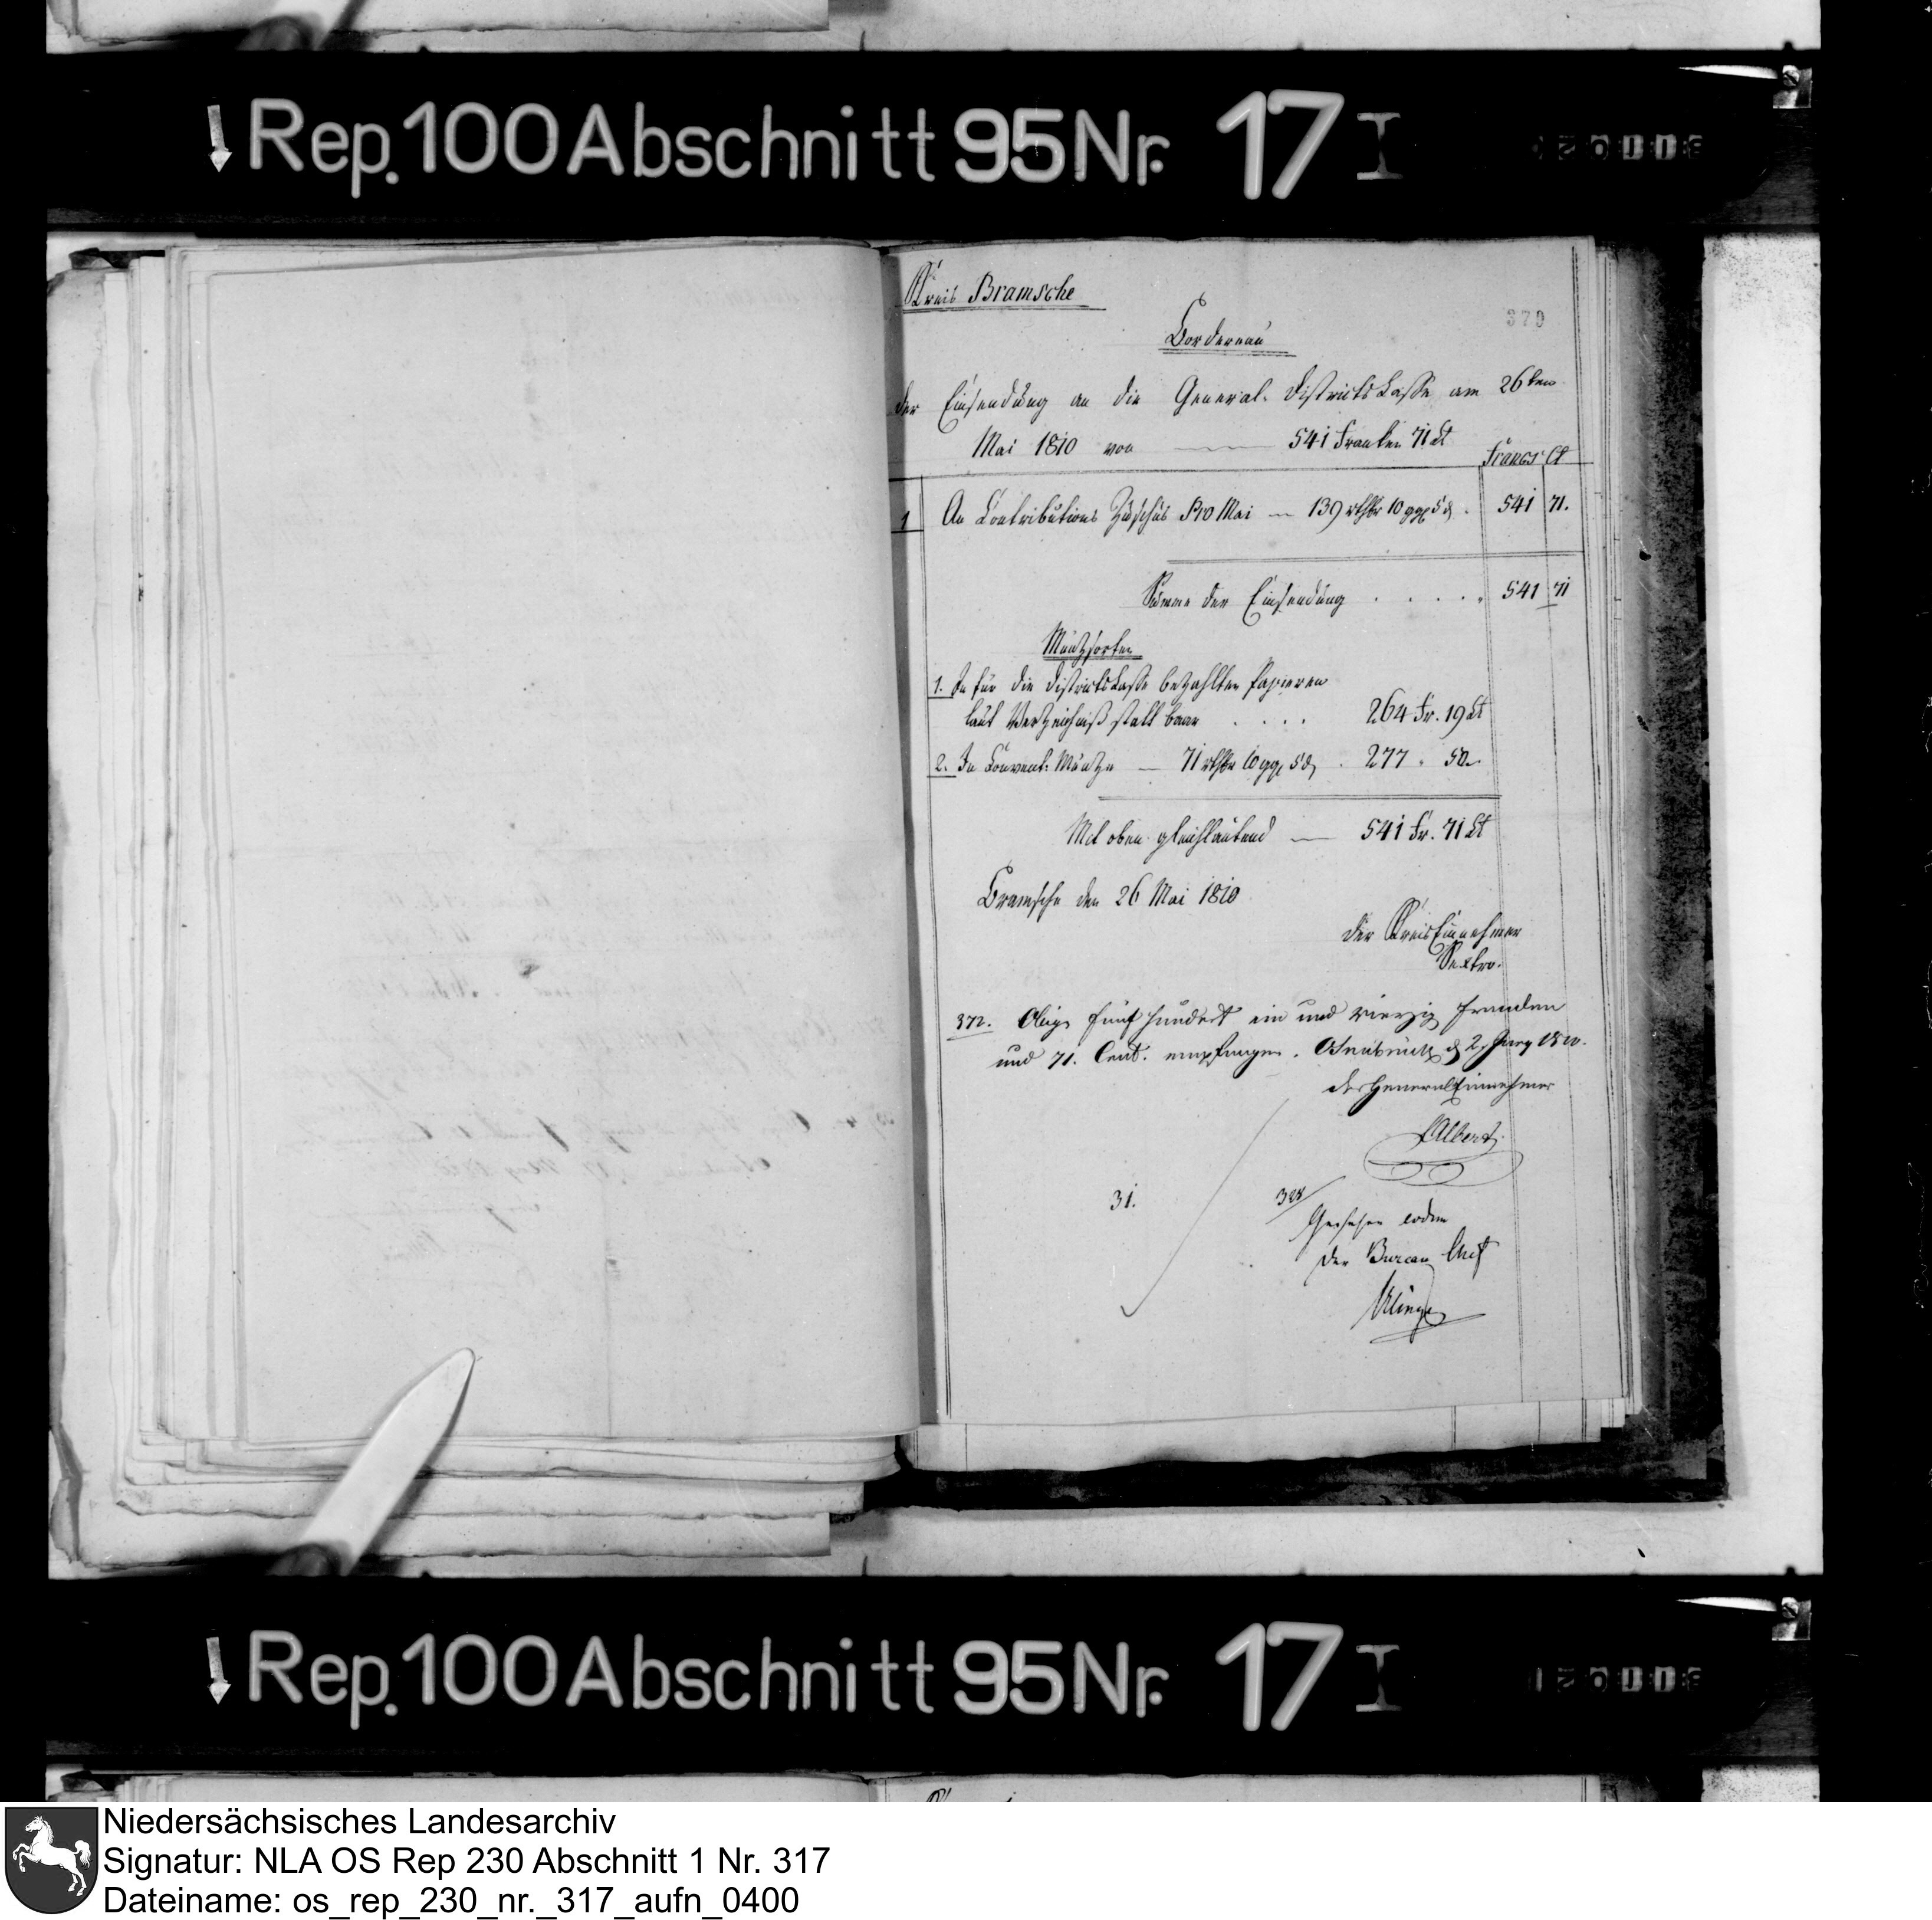 Rep. 100 Abschnitt 95 Nr. 17 I
Kreis Bramsche
370
Bordereau
der Einsendung an die General-Districts Kasse am 26ten
Mai 1810 von 541 Franken 71 Ct
Francs Ct
1 An Contributions Zuschus Pro Mai — 139 rthlr 10 ggl 5 d. 541 71.
Summe der Einsendung . . . . . 541 71
Müntzsorten
1. In für die Districts Kasse bezahlten Papieren
laut Verzeichniß statt baar . . . . 264 Fr. 19 Ct
2. In Convent: Müntze — 71 rthlr 10 ggl 5 d . 277 " 52.
Mit oben gleichlautend — 541 Fr. 71 Ct
Bramsche den 26 Mai 1810
Der Kreis Einnehmer
Sextro.
372. Obige fünf hundert ein und vierzig Franken
und 71. Cent. empfangen. Osnabrück d 2. Juny 1810.
der General Einnehmer
Albers
31.
328
Gesehen eodem
Der Bureau Chef
Rep. 100 Abschnitt 95 Nr. 17 I
Niedersächsisches Landesarchiv
Signatur: NLA OS Rep 230 Abschnitt 1 Nr. 317
Dateiname: os_rep_230_nr._317_aufn_0400